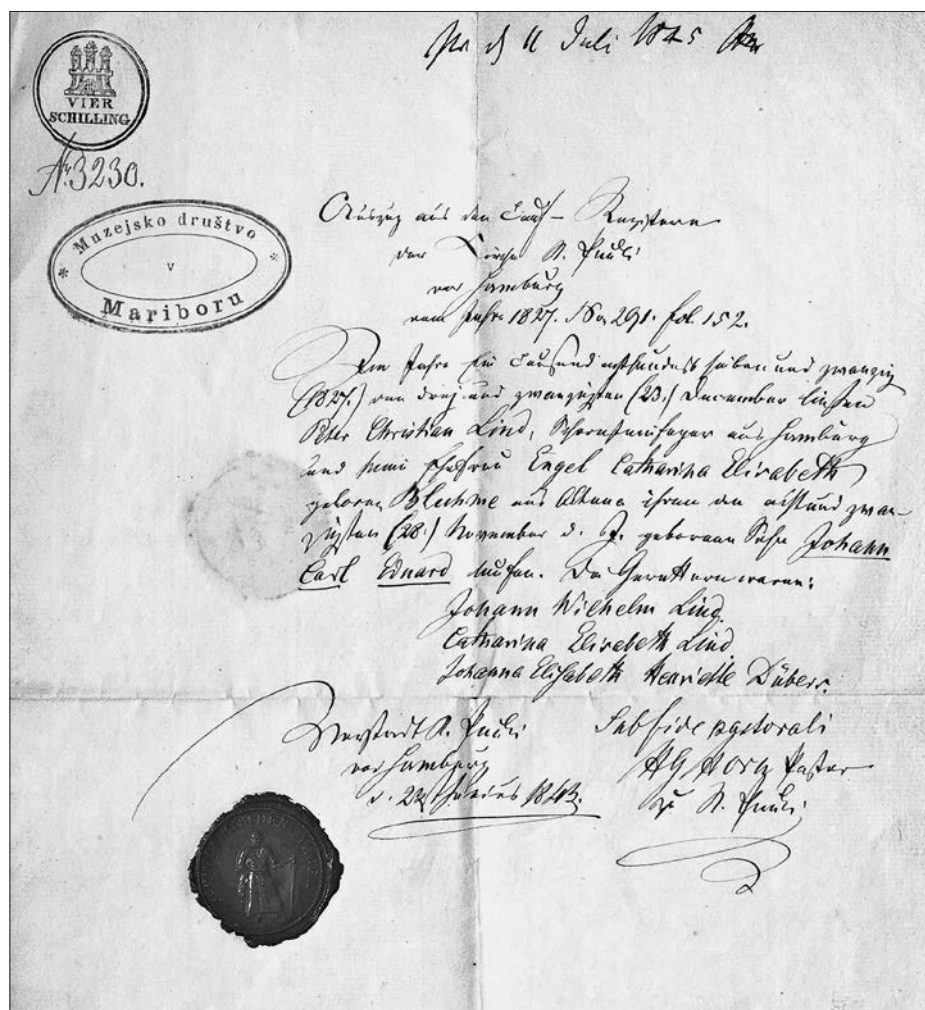 d 11 Juli 1845
VIER
SCHILLING
No. 3230.
Muzejsko društvo
v
Mariboru
Auszug aus den Tauf-Registern
der Kirche St. Pauli
vor Hamburg
vom Jahre 1827. No. 291. fol. 152.
Im Jahre Ein Tausend achthundert sieben und zwanzig
(1827.) den drey und zwanzigsten (23.) December ließen
Peter Christian Lind, Schornsteinfeger aus Hamburg
und seine Ehefrau Engel Catharina Elisabeth
geborne Bluhme aus Altona ihren den acht und zwan-
zigsten (28.) November d. J. gebornen Sohn Johann
Carl Eduard taufen. Die Gevattern waren:
Johann Wilhelm Lind.
Catharina Elisabeth Lind
Johanna Elisabeth Henriette Dübers.
Vorstadt St. Pauli
vor Hamburg
d. Julius 1843.
Sub fide pastorali
Pastor
zu St. Pauli